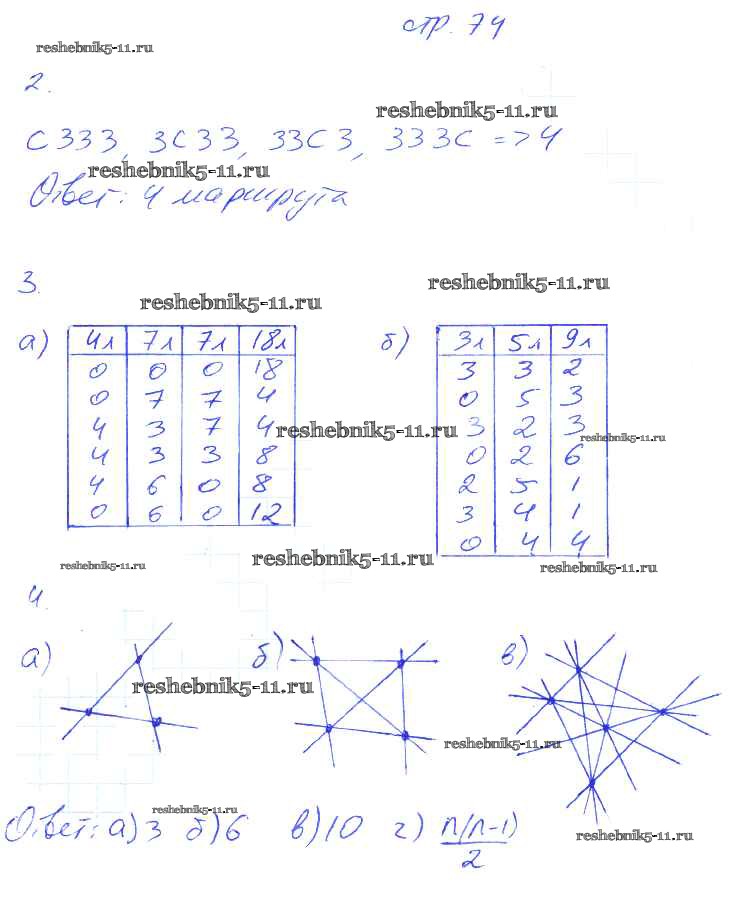 стр. 74
reshebnik5-11.ru
2.
reshebnik5-11.ru
СЗЗЗ, ЗСЗЗ, ЗЗСЗ, ЗЗЗС => 4
reshebnik5-11.ru
Ответ: 4 маршрута
3.
reshebnik5-11.ru
reshebnik5-11.ru
а)
4л 7л 7л 18л
0 0 0 18
0 7 7 4
4 3 7 4
4 3 3 8
4 6 0 8
0 6 0 12
б)
3л 5л 9л
3 3 2
0 5 3
3 2 3
0 2 6
2 5 1
3 4 1
0 4 4
reshebnik5-11.ru
reshebnik5-11.ru
reshebnik5-11.ru
reshebnik5-11.ru
reshebnik5-11.ru
4.
а) б) в)
reshebnik5-11.ru
reshebnik5-11.ru
reshebnik5-11.ru
Ответ: а) 3 б) 6 в) 10 г) n(n-1)
2
reshebnik5-11.ru